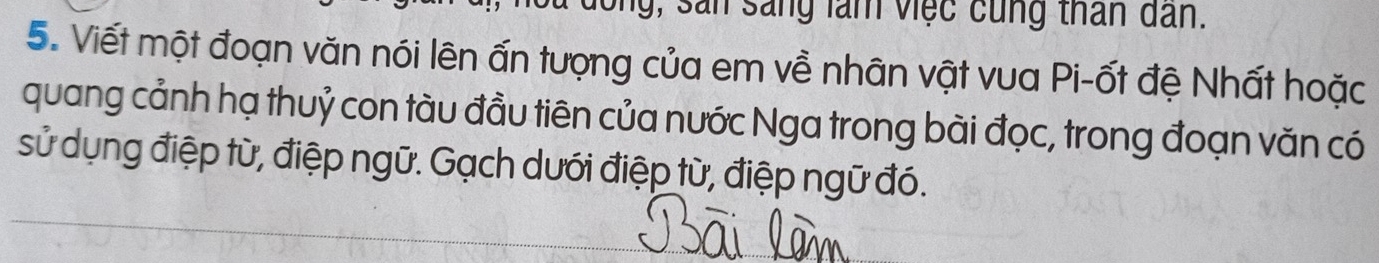 sẵn sàng làm việc cùng thần dân.
5. Viết một đoạn văn nói lên ấn tượng của em về nhân vật vua Pi-ốt đệ Nhất hoặc
quang cảnh hạ thuỷ con tàu đầu tiên của nước Nga trong bài đọc, trong đoạn văn có
sử dụng điệp từ, điệp ngữ. Gạch dưới điệp từ, điệp ngữ đó.
Bài làm